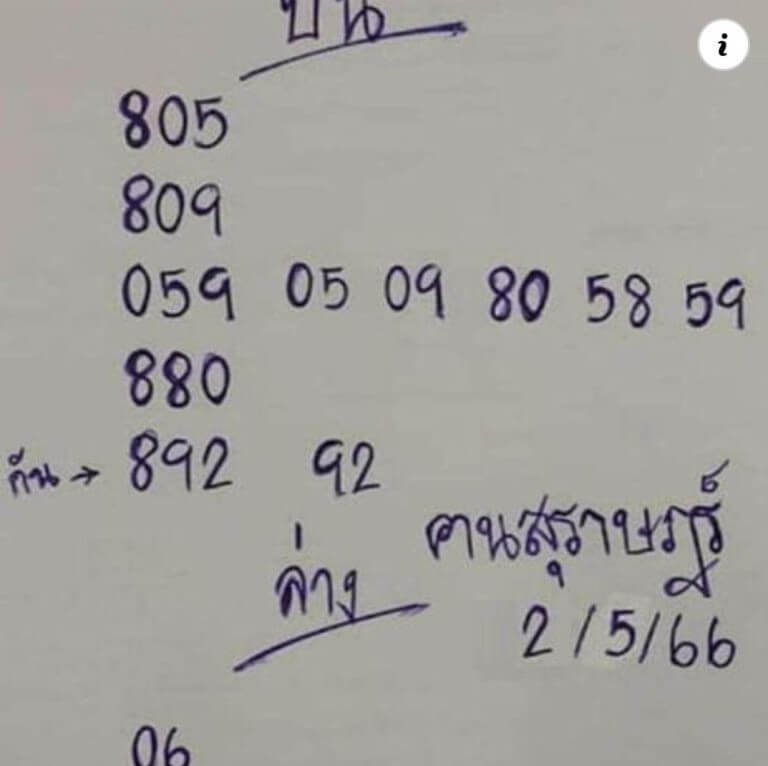 บน
805
809
059 05 09 80 58 59
880
กัน → 892 92
คนสุราษฎร์
ล่าง
2/5/66
06